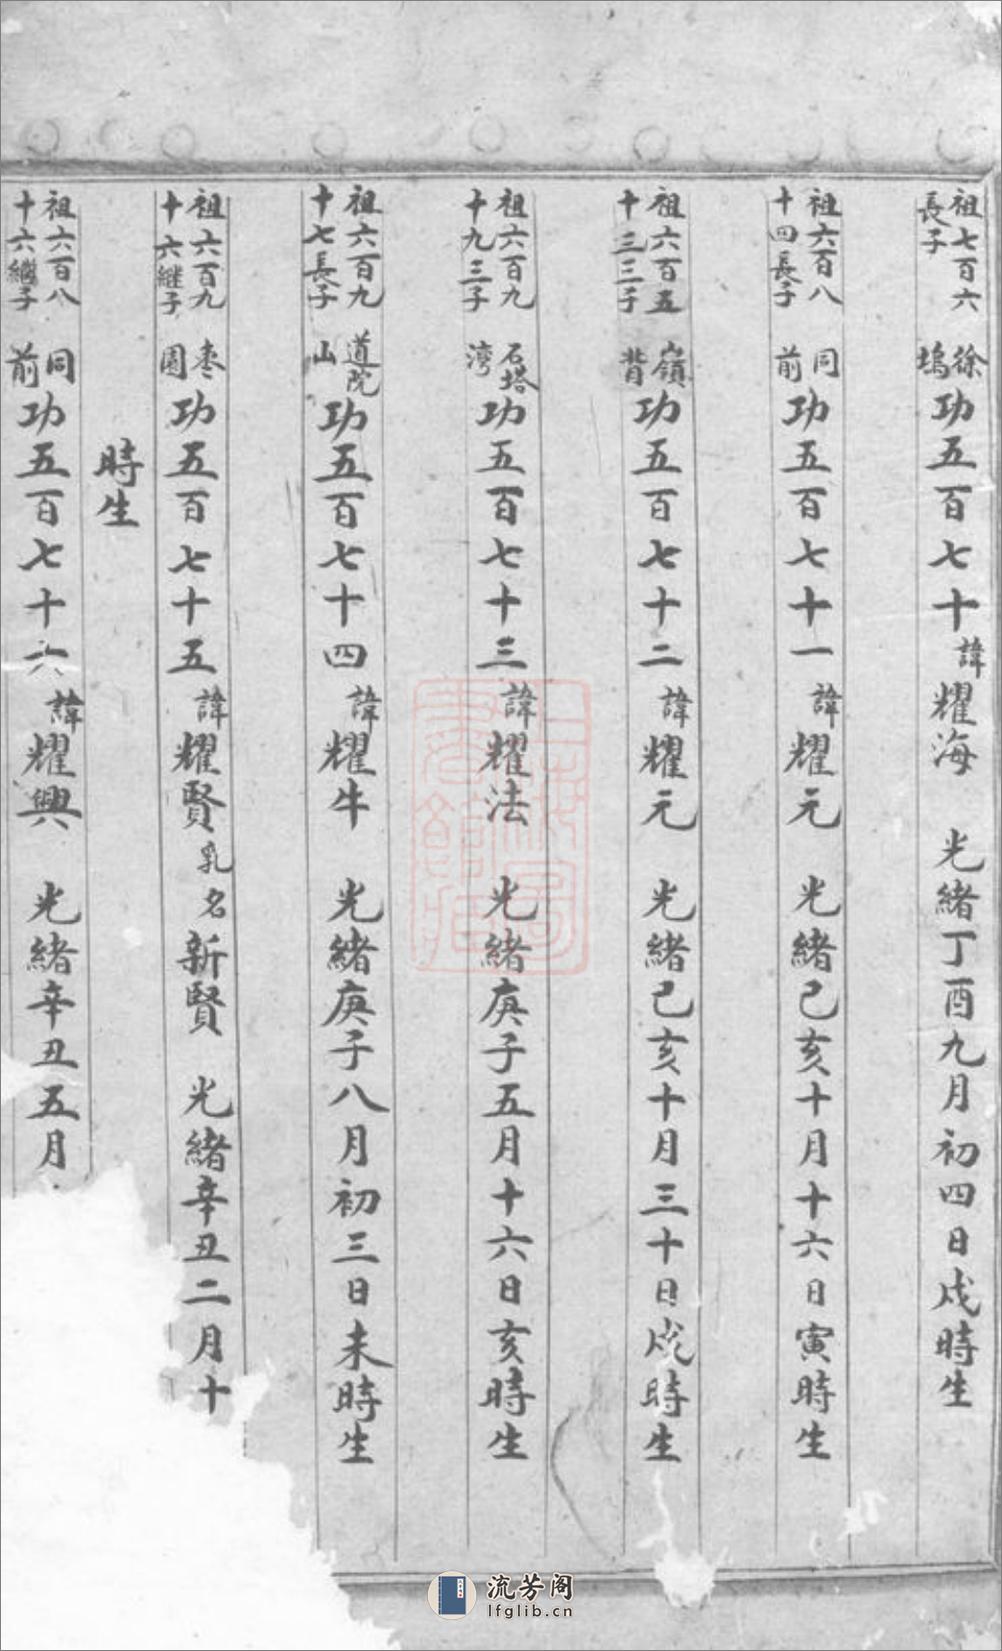 祖七百六
長子
徐
塢
功五百七十諱耀海 光緒丁酉九月初四日戌時生
祖六百八
十四長子
同
前
功五百七十一諱耀元 光緒己亥十月十六日寅時生
祖六百五
十三三子
嶺
背
功五百七十二諱耀元 光緒己亥十月三十日戌時生
祖六百九
十九三子
石塔
湾
功五百七十三諱耀法 光緒庚子五月十六日亥時生
祖六百九
十七長子
道院
山
功五百七十四諱耀牛 光緒庚子八月初三日未時生
祖六百九
十六継子
枣
園
功五百七十五諱耀賢乳名新賢 光緒辛丑二月十
時生
祖六百八
十六繼子
同
前
功五百七十六諱耀興 光緒辛丑五月
流芳阁
lfglib.cn